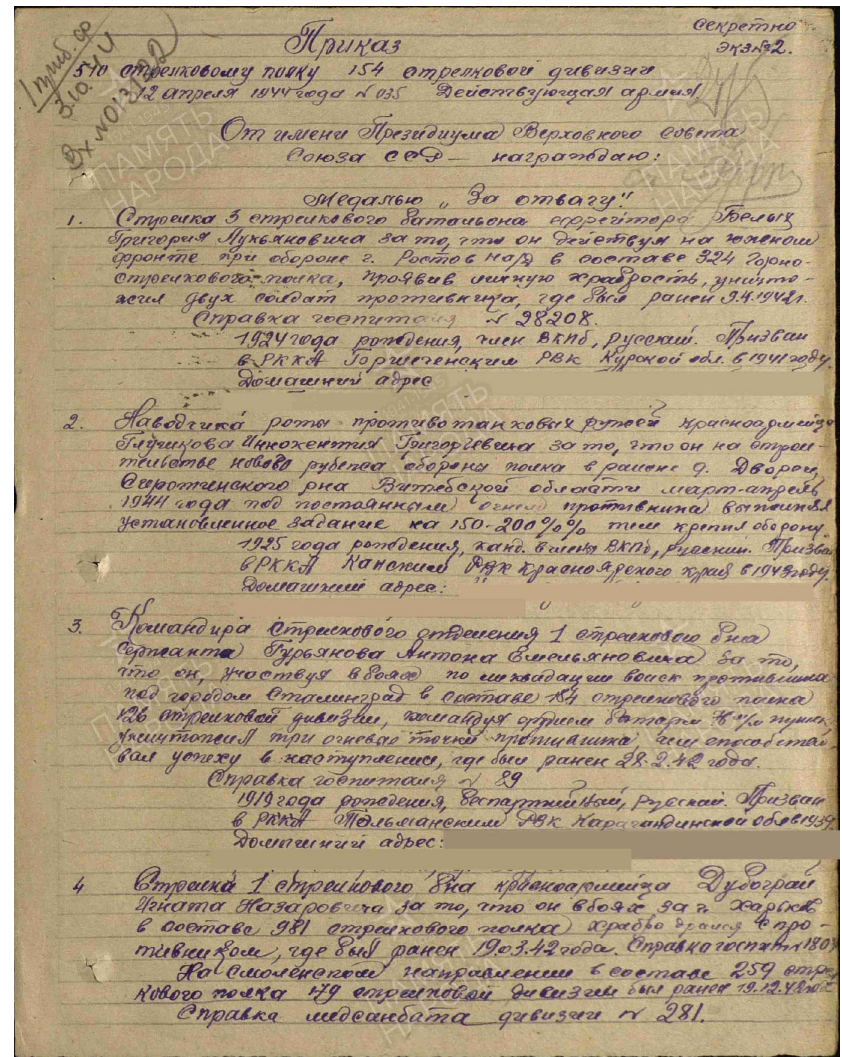 Секретно
Экз №2.
Приказ
510 стрелковому полку 154 стрелковой дивизии
12 апреля 1944 года № 035 Действующая армия
1 приб. ср
3.10.44
Вх №
От имени Президиума Верховного Совета
Союза ССР — награждаю:
Медалью „За отвагу"
1. Стрелка 3 стрелкового батальона ефрейтора Белых
Григория Лукьяновича за то, что он действуя на южном
фронте при обороне г. Ростов н/д в составе 324 горно-
стрелкового полка, проявив личную храбрость, уничто-
жил двух солдат противника, где был ранен 9.4.1942г.
Справка госпиталя № 28208.
1924 года рождения, член ВКПб, русский. Призван
в РККА Горшеченским РВК Курской обл. в 1941 году.
Домашний адрес
2. Наводчика роты противотанковых ружей красноармейца
Глушкова Иннокентия Григорьевича за то, что он на строи-
тельстве нового рубежа обороны полка в районе д. Дворец,
Сиротинского рна Витебской области март-апрель
1944 года под постоянным огнем противника выполнял
установленное задание на 150-200%% тем крепил оборону.
1925 года рождения, канд. в члены ВКПб, русский. Призван
в РККА Канским РВК Красноярского края в 1943 году.
Домашний адрес:
3. Командира стрелкового отделения 1 стрелкового бна
сержанта Гурьянова Антона Емельяновича за то,
что он, участвуя в боях по ликвидации войск противника
под городом Сталинград в составе 154 стрелкового полка
126 стрелковой дивизии, командуя огнем батареи 76 м/м пушек
уничтожил три огневые точки противника, чем способство-
вал успеху в наступлении, где был ранен 28.2.42 года.
Справка госпиталя № 29
1919 года рождения, беспартийный, русский. Призван
в РККА Тельманским РВК Карагандинской обл в 1939г.
Домашний адрес:
4 Стрелка 1 стрелкового бна красноармейца Дубограй
Игната Назаровича за то, что он в боях за г. Харьков
в составе 981 стрелкового полка храбро дрался с про-
тивником, где был ранен 19.03.42 года. Справка госпит №
На Смоленском направлении в составе 259 стрел-
кового полка 179 стрелковой дивизии был ранен 19.12.42 года
Справка медсанбата дивизии № 281.
ПАМЯТЬ
НАРОДА